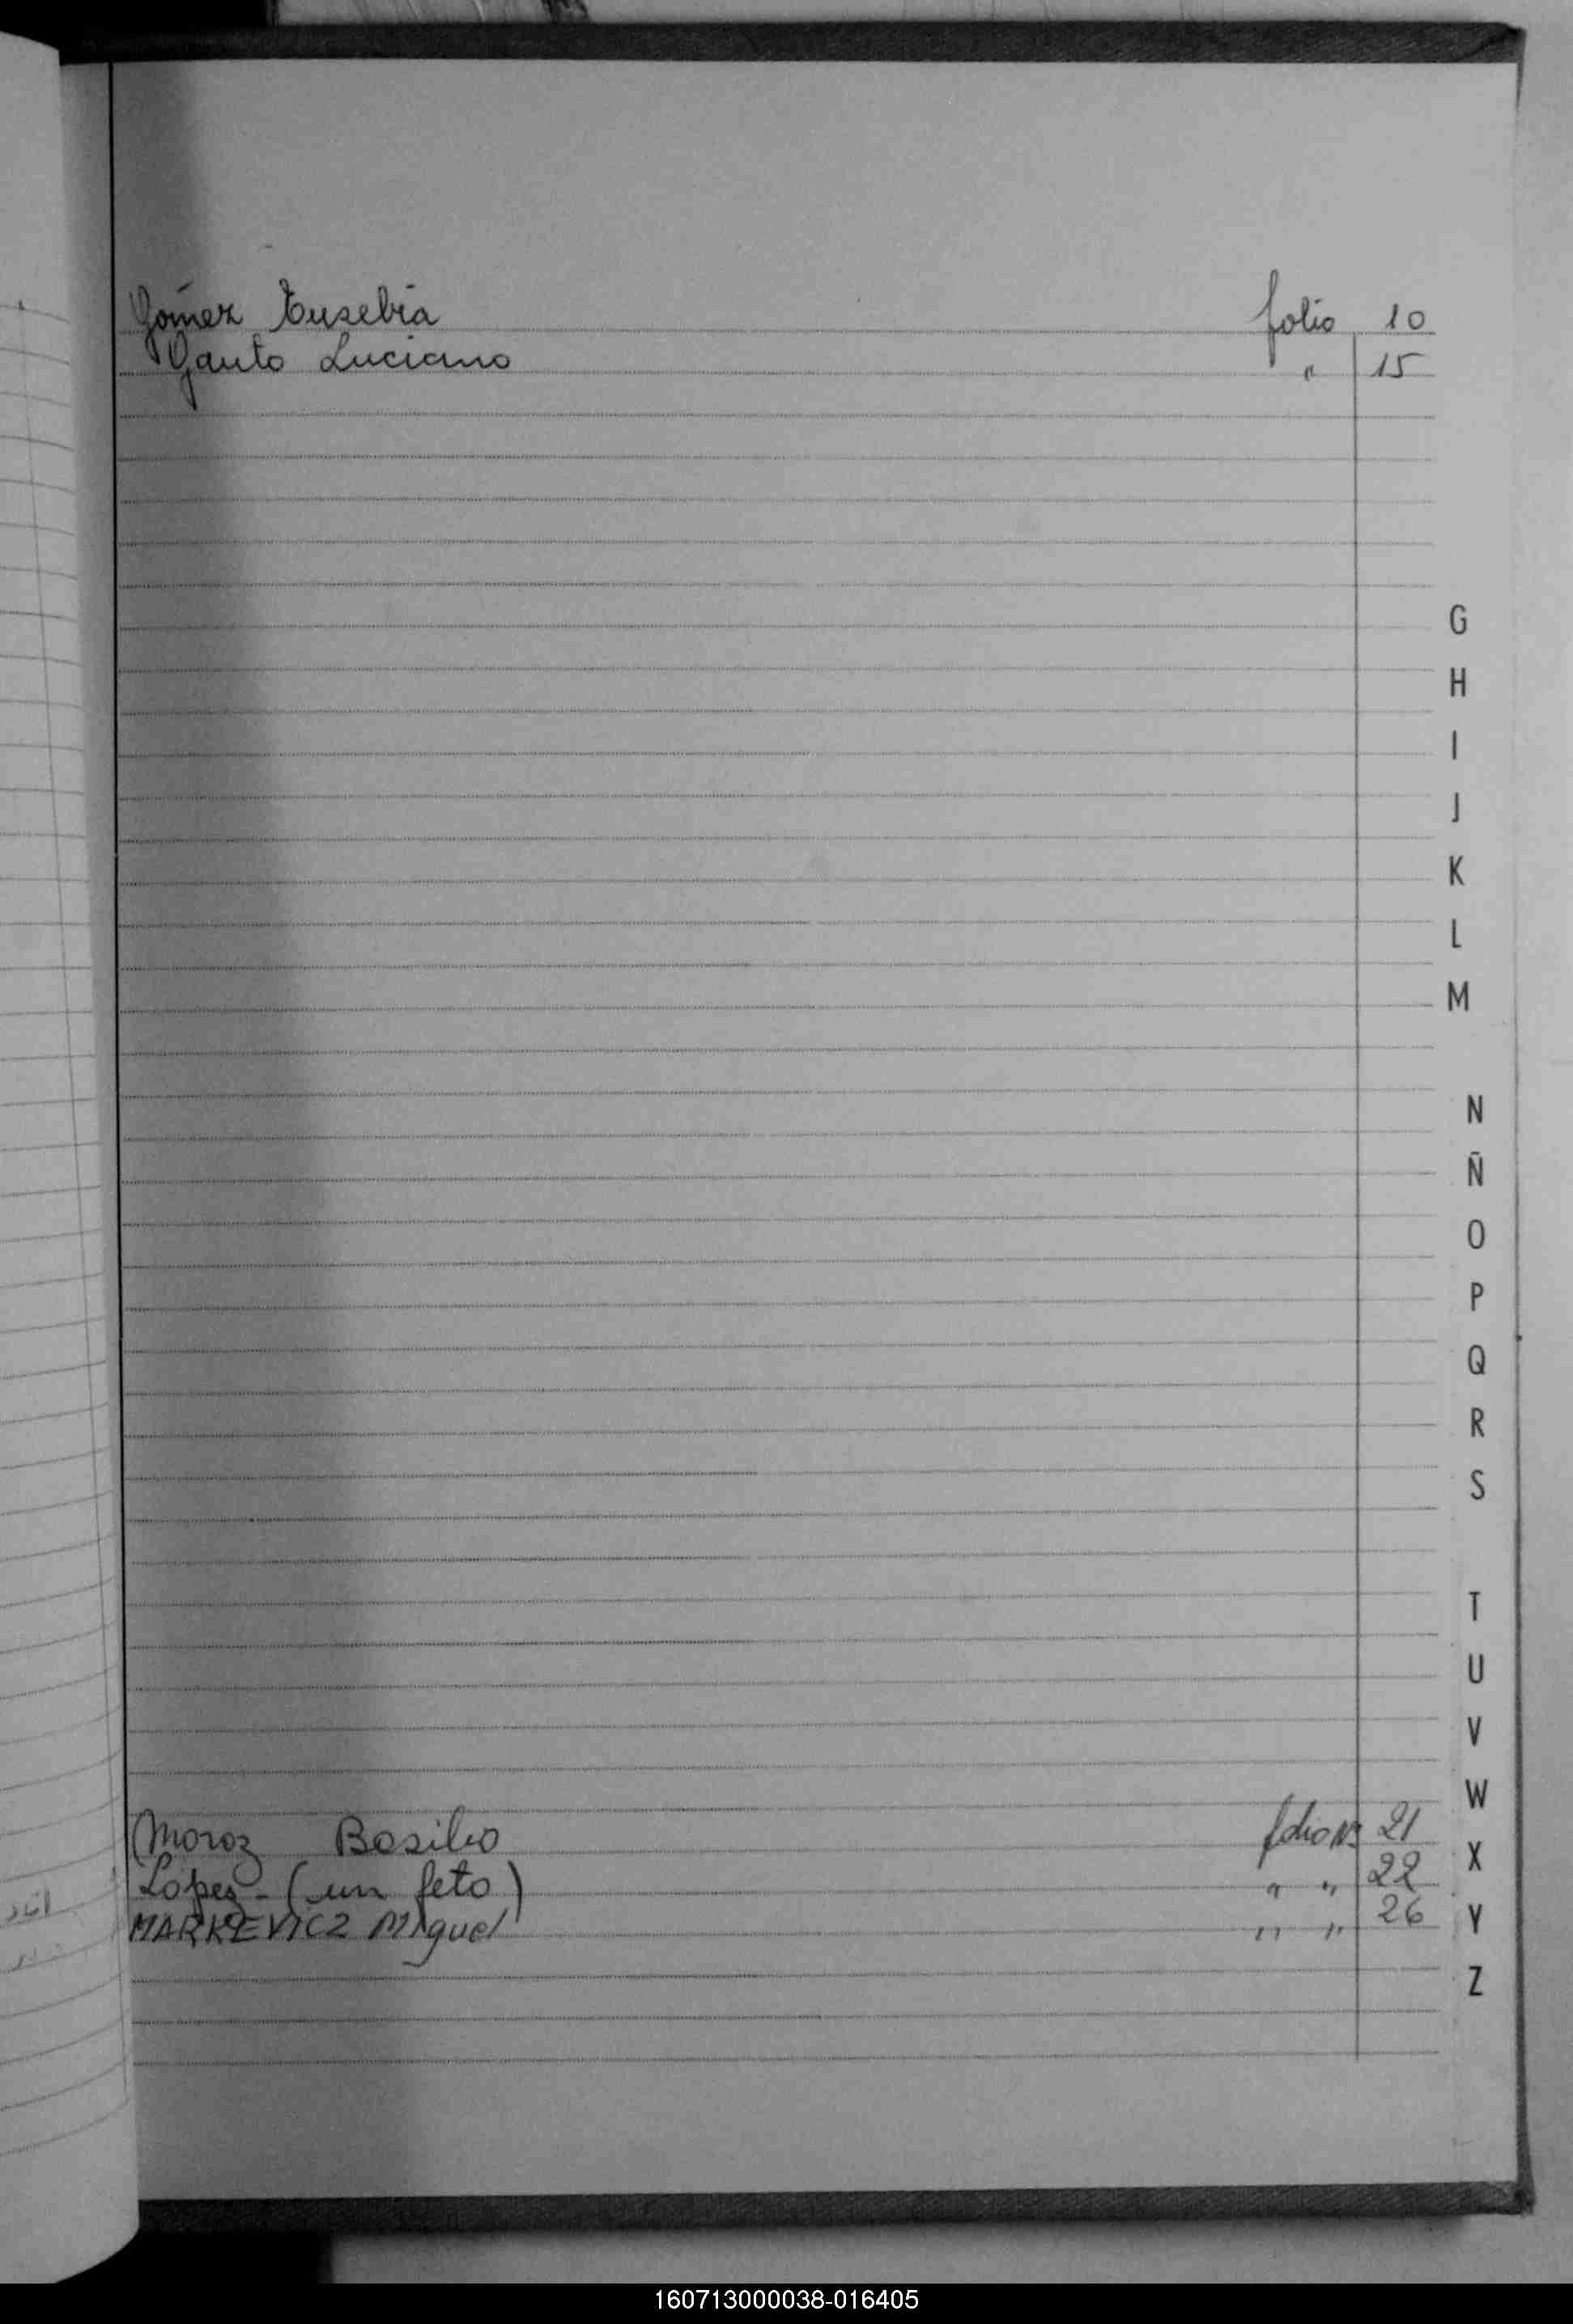 Gómez Eusebia folio 10
Gauto Luciano " 15
G
H
I
J
K
L
M
N
Ñ
O
P
Q
R
S
T
U
V
W
Moroz Basilio folio Nº 21
X
López - (un feto) " " 22
MARKIEVICZ Miguel " " 26
Y
Z
160713000038-016405